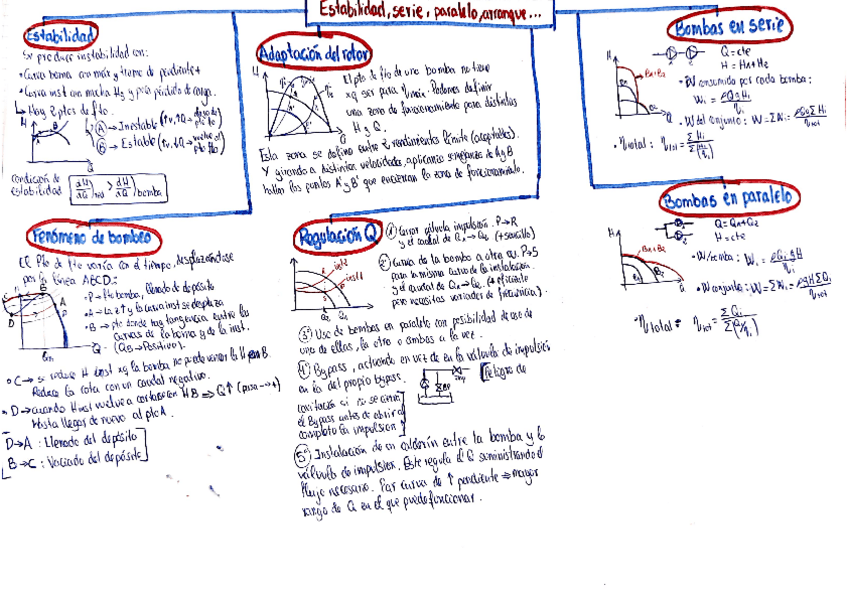 Estabilidad, serie, paralelo, arranque...
Estabilidad
Se produce inestabilidad con:
• Curva bomba con máx y tramo de pendiente +
• Curva inst con mucha Hg y poca pérdida de carga.
↳ Hay 2 ptos de fto.
A → Inestable
B → Estable
Condición de
estabilidad
dH/dQ)inst > dH/dQ)bomba
Adaptación del rotor
El pto de fto de una bomba no tiene
xq ser para ηmáx. Podemos definir
una zona de funcionamiento para distintos
H y Q.
Esta zona se define entre 2 rendimientos límite (aceptables).
Y girando a distintas velocidades, aplicamos semejanza de A y B
hallan los puntos A' y B' que encierran la zona de funcionamiento.
Bombas en serie
Q = cte
H = H1 + H2
B1+B2
• W consumida por cada bomba:
• W del conjunto: W = ΣWi =
• η total: ηtot =
Bombas en paralelo
Q = Q1+Q2
H = cte
B1+B2
• W/bomba:
• W conjunto: W = ΣWi =
• η total = ηtot =
Fenómeno de bombeo
El Pto de fto varía con el tiempo, desplazándose
por la línea ABCD:
• P → fto bomba, llenado de depósito
• A → La z↑ y la curva inst se desplaza
• B → pto donde hay tangencia entre las
curvas de la bomba y de la inst.
(QB → Positivo).
• C → se reduce H inst xq la bomba no puede vencer la H en B.
Reduce la cota con un caudal negativo.
• D → cuando Hinst vuelve a cortarse con HB ⇒ Q↑ (pasa - → +)
Hasta llegar de nuevo al pto A.
D→A : Llenado del depósito
B→C : Vaciado del depósito
Regulación Q
1º Cerrar válvula impulsión. P→R
y el caudal de (+ sencillo)
2º Curva de la bomba a otra α. P→S
para la misma curva de la instalación
y el caudal de (+ eficiente
pero necesitas variador de frecuencia).
3º Uso de bombas en paralelo con posibilidad de uso de
una de ellas, la otra o ambas a la vez.
4º Bypass, actuando en vez de en la válvula de impulsión
en la del propio bypass.
Peligro de
cavitación si se cierra
el Bypass antes de abrir x
completo la impulsión
5º Instalación de un calderín entre la bomba y la
válvula de impulsión. Este regula el Q suministrando el
flujo necesario. Para curva de ↑ pendiente ⇒ mayor
rango de Q en el que puede funcionar.